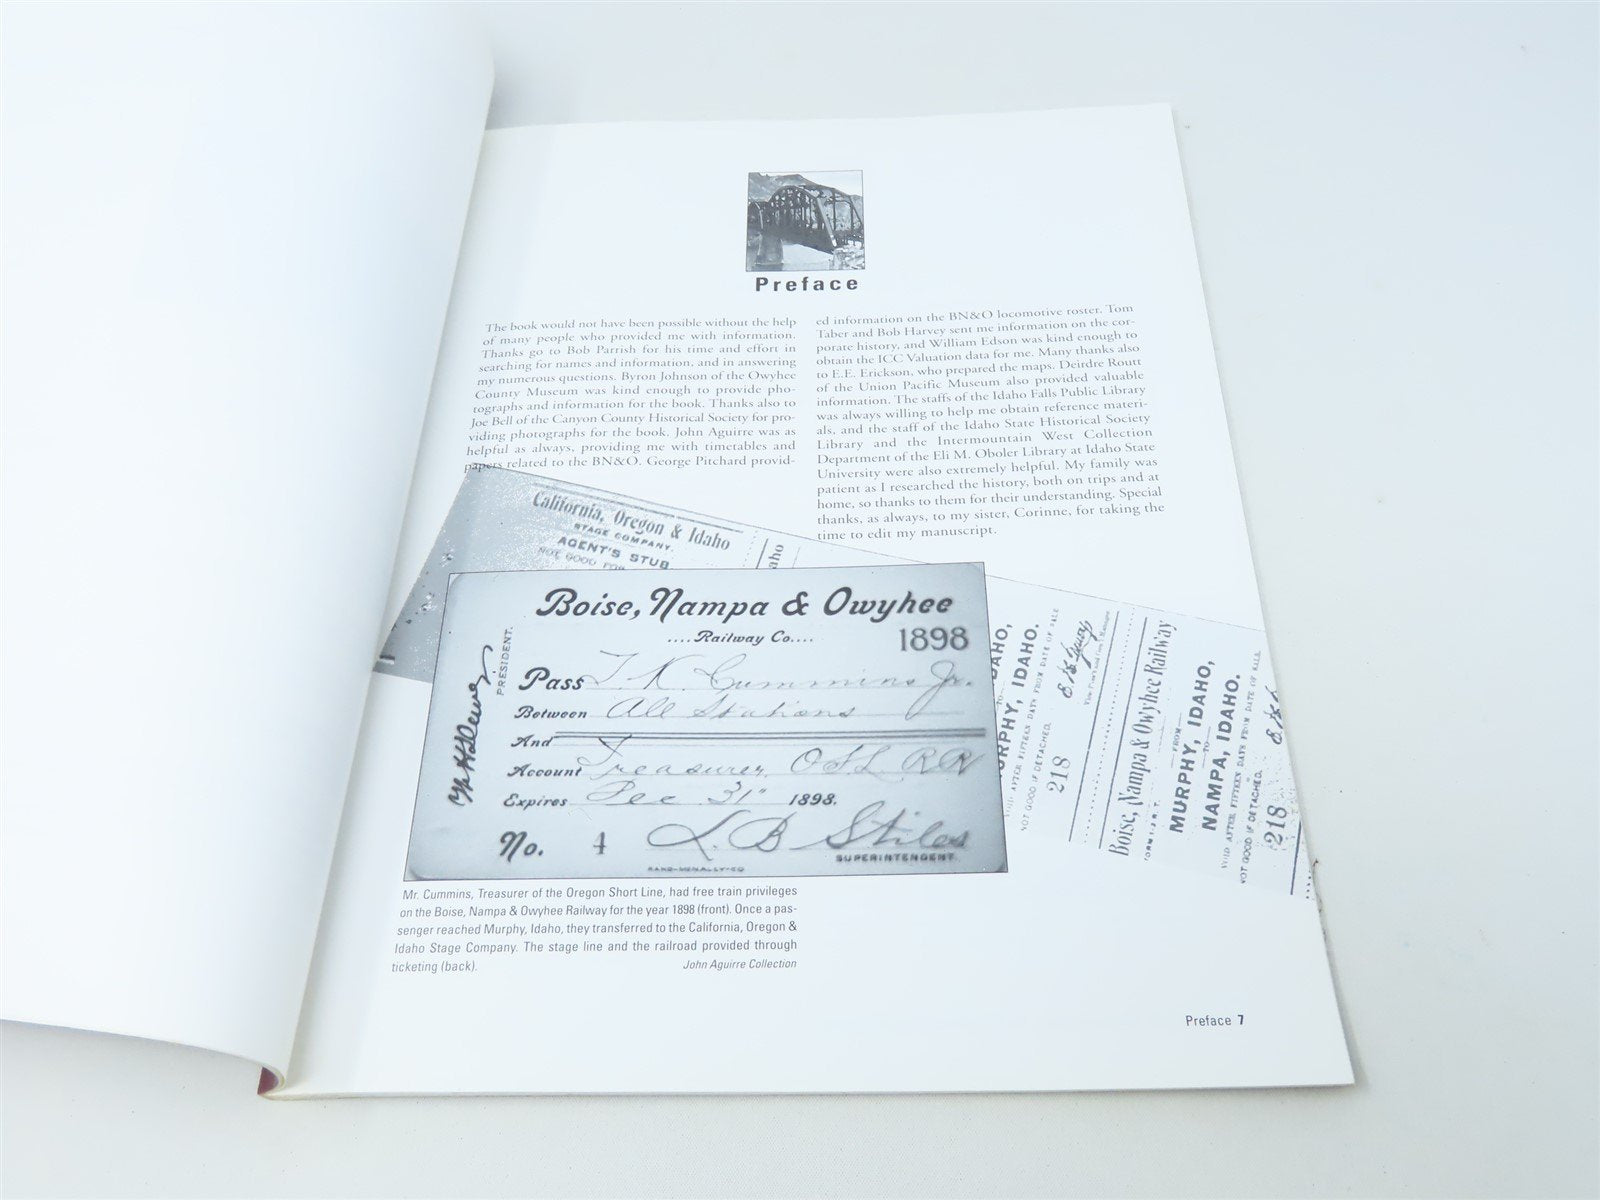 Preface
The book would not have been possible without the help
of many people who provided me with information.
Thanks go to Bob Parrish for his time and effort in
searching for names and information, and in answering
my numerous questions. Byron Johnson of the Owyhee
County Museum was kind enough to provide pho-
tographs and information for the book. Thanks also to
Joe Bell of the Canyon County Historical Society for pro-
viding photographs for the book. John Aguirre was as
helpful as always, providing me with timetables and
papers related to the BN&O. George Pitchard provid-
ed information on the BN&O locomotive roster. Tom
Taber and Bob Harvey sent me information on the cor-
porate history, and William Edson was kind enough to
obtain the ICC Valuation data for me. Many thanks also
to E.E. Erickson, who prepared the maps. Deirdre Routt
of the Union Pacific Museum also provided valuable
information. The staffs of the Idaho Falls Public Library
was always willing to help me obtain reference materi-
als, and the staff of the Idaho State Historical Society
Library and the Intermountain West Collection
Department of the Eli M. Oboler Library at Idaho State
University were also extremely helpful. My family was
patient as I researched the history, both on trips and at
home, so thanks to them for their understanding. Special
thanks, as always, to my sister, Corinne, for taking the
time to edit my manuscript.
California, Oregon & Idaho
STAGE COMPANY.
AGENT'S STUB
NOT GOOD FOR
aho
Boise, Nampa & Owyhee
....Railway Co....
1898
PRESIDENT.
Pass T. K. Cummins Jr.
Between All Stations
And
Account Treasurer, OSL RR
Expires Dec 31" 1898.
No. 4 L. B Stiles
SUPERINTENDENT.
RAND-MCNALLY-CO
AHO,
TO
MURPHY, IDAHO.
VOID AFTER FIFTEEN DAYS FROM DATE OF SALE
NOT GOOD IF DETACHED.
218
Boise, Nampa & Owyhee Railway
FROM
MURPHY, IDAHO,
TO
NAMPA, IDAHO.
VOID AFTER FIFTEEN DAYS FROM DATE OF SALE.
NOT GOOD IF DETACHED.
218
Mr. Cummins, Treasurer of the Oregon Short Line, had free train privileges
on the Boise, Nampa & Owyhee Railway for the year 1898 (front). Once a pas-
senger reached Murphy, Idaho, they transferred to the California, Oregon &
Idaho Stage Company. The stage line and the railroad provided through
ticketing (back). John Aguirre Collection
Preface 7